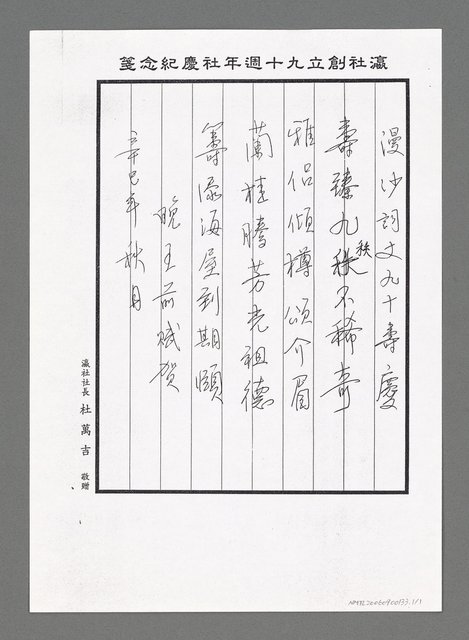 瀛社創立九十週年社慶紀念箋
漫沙詞丈九十壽慶
壽臻九秩不稀奇
秩
雅侶傾樽頌介眉
蘭桂騰芳光祖德
籌添海屋到期頤
晚王前賦賀
辛巳年秋月
瀛社社長 杜萬吉 敬贈
NMTL20060900133.1/1